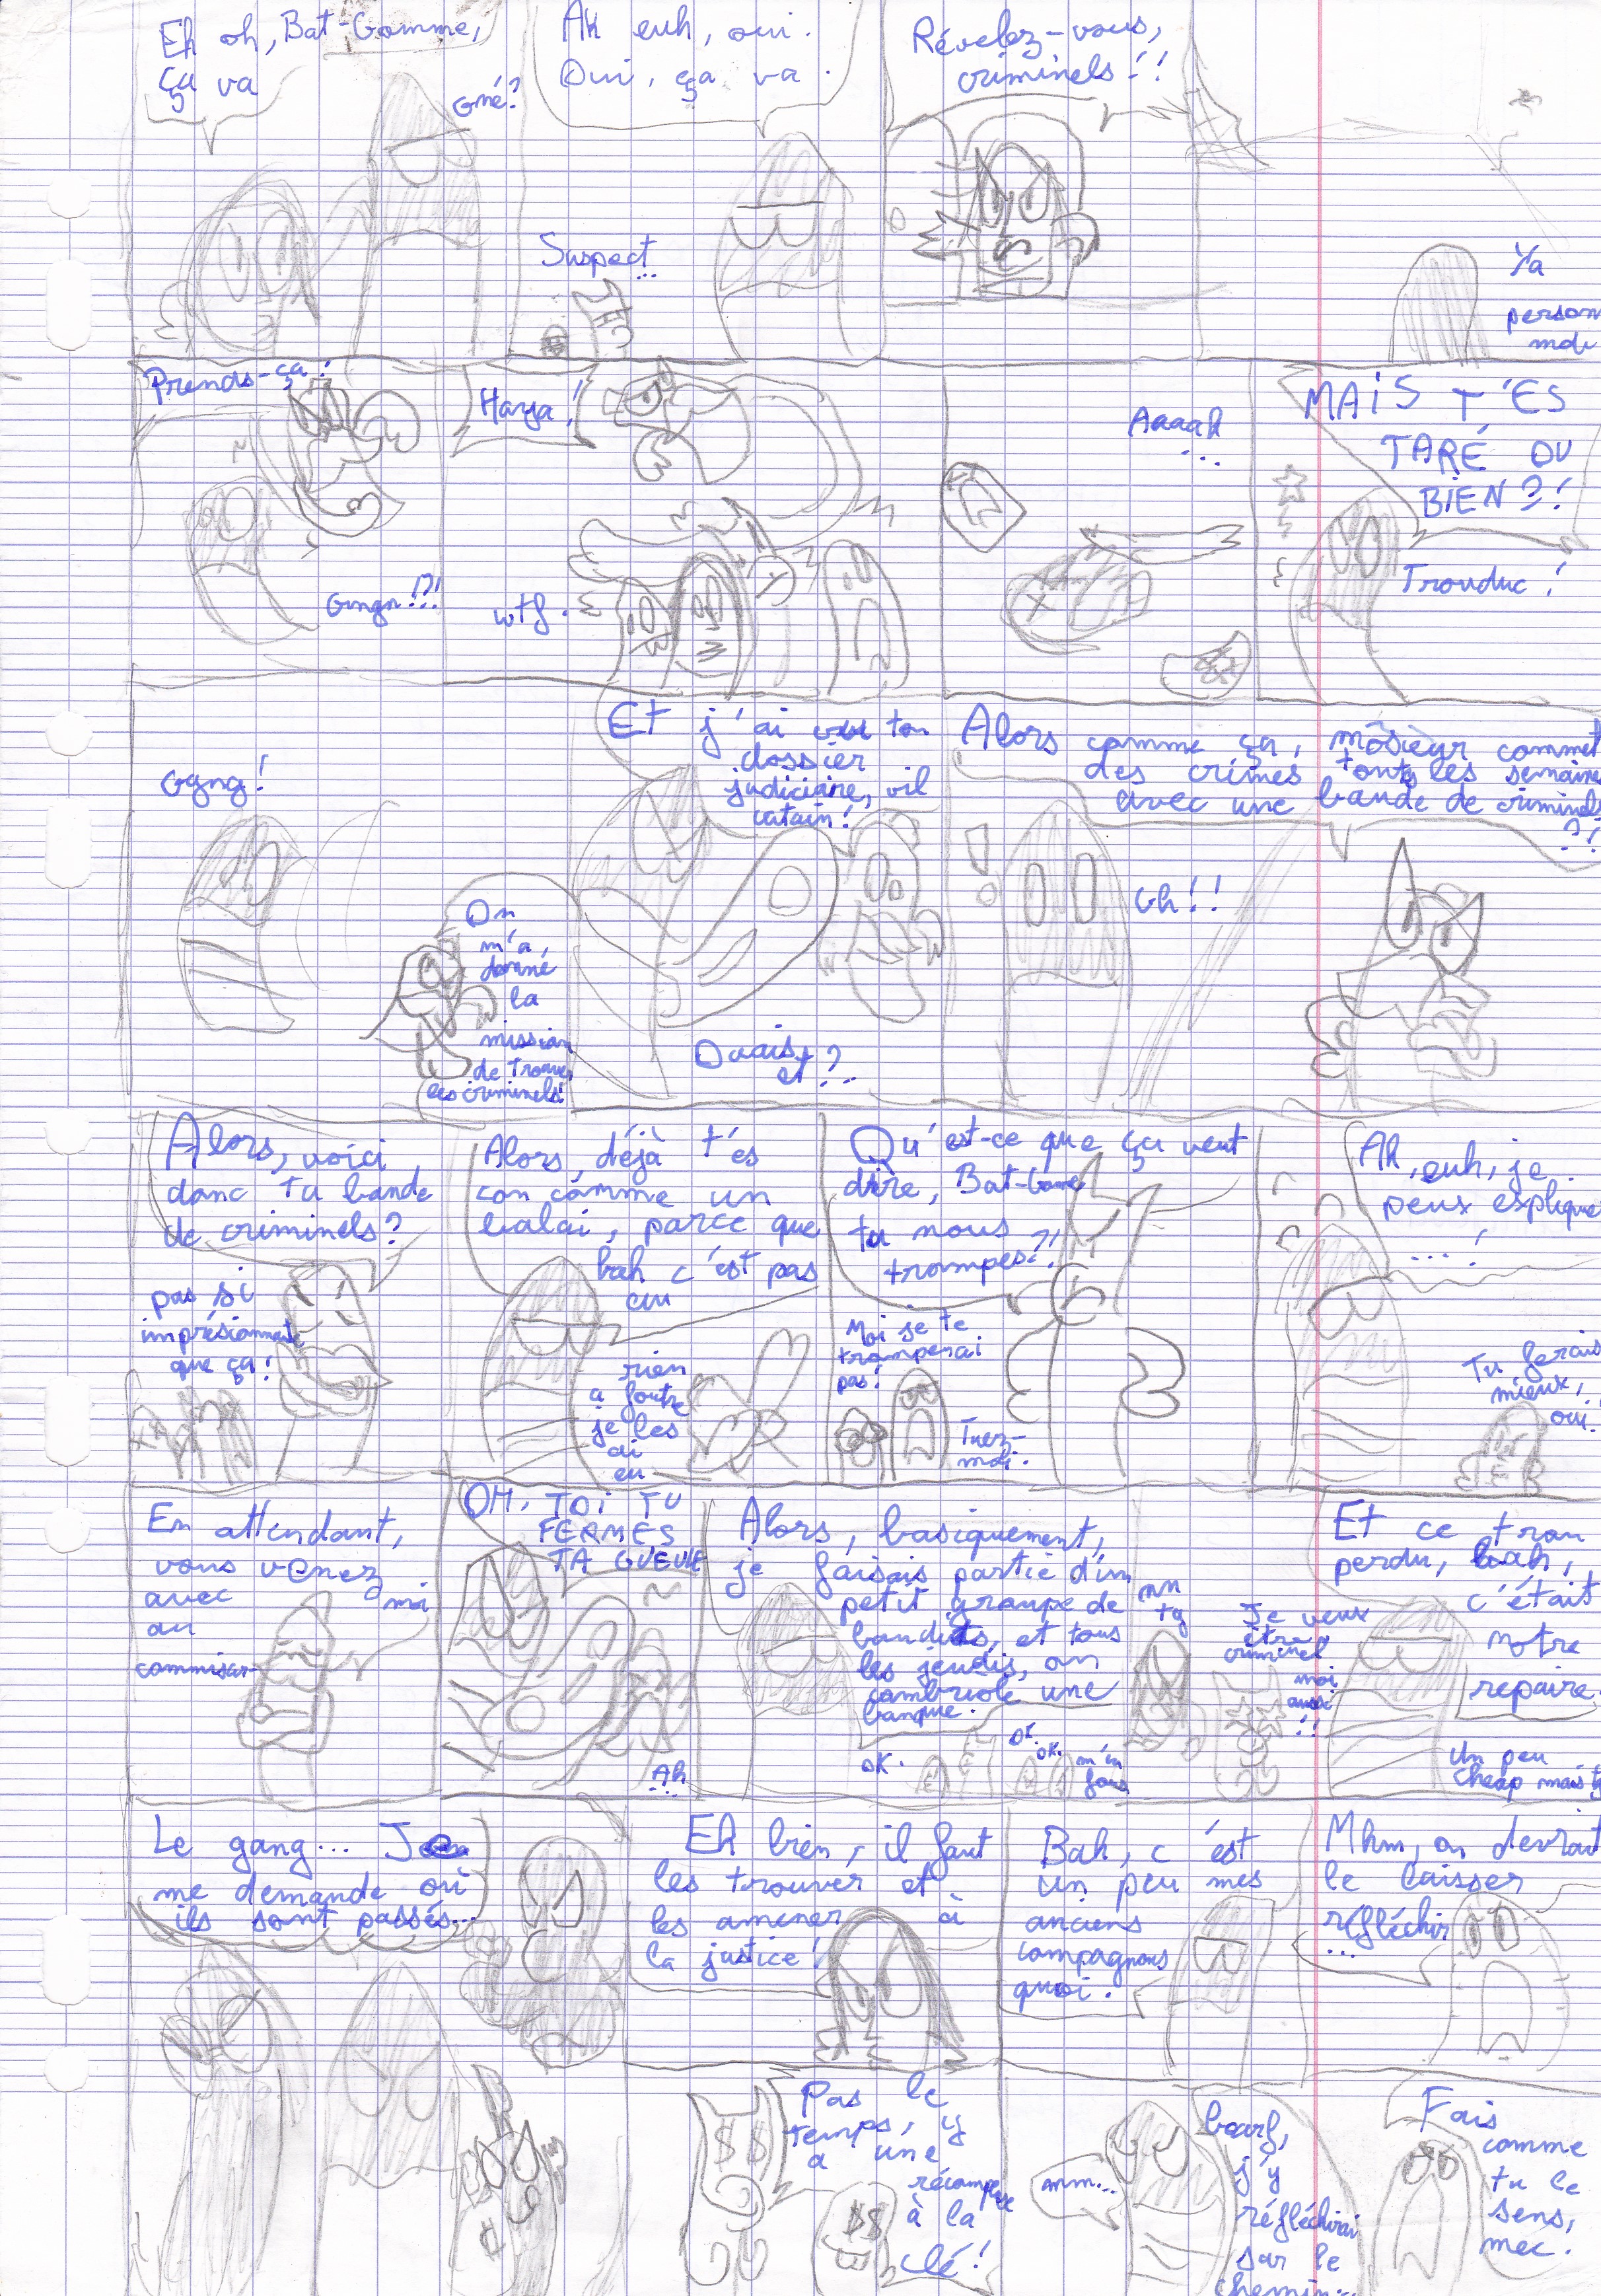 Eh oh, Bat-Gomme,
ça va
Gné?
Ah euh, oui.
Oui, ça va.
Suspect
...
Révelez-vous,
criminels!!
Ya
person
mdr
Prends-ça!
Gngn!?!
Haya!
wtf.
Aaaah
...
MAIS T'ES
TARÉ OU
BIEN?!
Trouduc!
Ggng!
On
m'a
donné
la
mission
de trouver
les criminels!
Et j'ai vu ton
dossier
judiciaire, vil
catain!
Ouais,
et?...
Alors comme ça, môsieur commet
des crimes touts les semaines
avec une bande de criminels
?!
Gh!!
Alors, voici
donc ta bande
de criminels?
pas si
impréssionnante
que ça!
Alors, déjà t'es
con comme un
balai, parce que
bah c'est pas
eux
rien
à foutre
je les
ai
eu
Qu'est-ce que ça veut
dire, Bat-Gomme,
tu nous
trompes?!
Moi je te
tromperai
pas!
Tuez-
moi.
Ah, euh, je
peux explique
...!
Tu ferais
mieux,
oui!
En attendant,
vous venez
avec moi
au
commisar-
OH, TOI TU
FERMES
TA GUEULE
Ah
...
Alors, basiquement,
je faisais partie d'un
petit groupe de
bandits, et tous
les jeudis, on
cambriole une
banque.
OK.
OK.
OK.
m'en
fous
nn
tg
Je veux
être
criminel
moi
aussi
!!
Et ce trou
perdu, bah,
c'était
notre
repaire.
Un peu
cheap mais
Le gang... Je
me demande où
ils sont passés...
Eh bien, il faut
les trouver et
les amener à
la justice!
Bah, c'est
un peu mes
anciens
compagnons
quoi.
Mhm, on devrait
le laisser
réfléchir
...
Pas le
temps, y
a une
récompense
à la
clé!
mm...
bearf,
j'y
réfléchirai
sur le
chemin...
Fais
comme
tu le
sens,
mec.